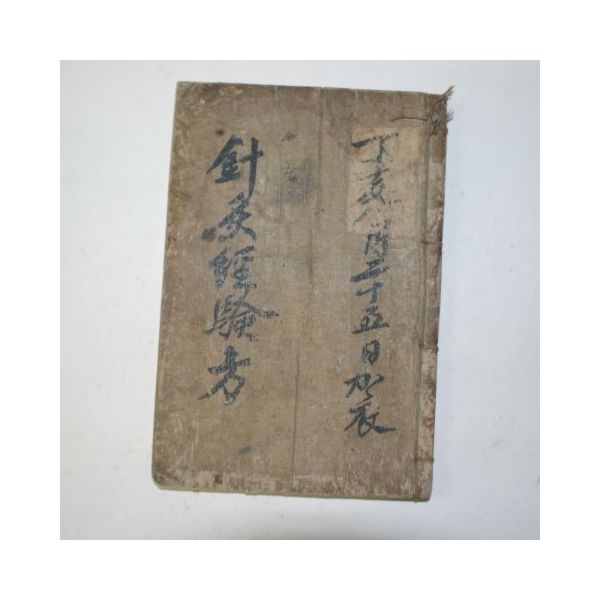 丁亥八月二十五日加衣
針灸經驗方